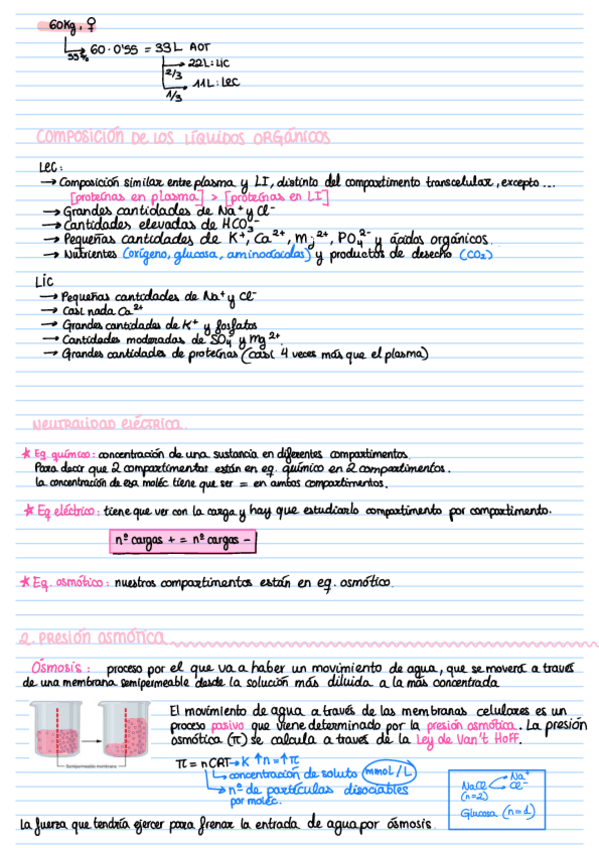 60Kg, ♀
55% → 60·0'55 = 33L AOT
2/3 → 22L: LIC
1/3 → 11L: LEC
COMPOSICIÓN DE LOS LÍQUIDOS ORGÁNICOS
LEC:
→ Composición similar entre plasma y LI, distinto del compartimento transcelular, excepto...
[proteínas en plasma] > [proteínas en LI]
→ Grandes cantidades de Na⁺ y Cl⁻
→ Cantidades elevadas de HCO₃⁻
→ Pequeñas cantidades de K⁺, Ca²⁺, Mg²⁺, PO₄²⁻ y ácidos orgánicos.
→ Nutrientes (oxígeno, glucosa, aminoácidos) y productos de desecho (CO₂)
LIC
→ Pequeñas cantidades de Na⁺ y Cl⁻
→ Casi nada Ca²⁺
→ Grandes cantidades de K⁺ y fosfatos
→ Cantidades moderadas de SO₄⁻ y Mg²⁺
→ Grandes cantidades de proteínas (casi 4 veces más que el plasma)
NEUTRALIDAD ELÉCTRICA.
★ Eq. químico: concentración de una sustancia en diferentes compartimentos.
Para decir que 2 compartimentos están en eq. químico en 2 compartimentos.
la concentración de esa moléc tiene que ser = en ambos compartimentos.
★ Eq eléctrico: tiene que ver con la carga y hay que estudiarlo compartimento por compartimento.
nº cargas + = nº cargas -
★ Eq. osmótico: nuestros compartimentos están en eq. osmótico.
2. PRESIÓN OSMÓTICA
Ósmosis: proceso por el que va a haber un movimiento de agua, que se moverá a través
de una membrana semipermeable desde la solución más diluida a la más concentrada
El movimiento de agua a través de las membranas celulares es un
proceso pasivo que viene determinado por la presión osmótica. La presión
osmótica (π) se calcula a través de la Ley de Van't Hoff.
Semipermeable membrane
π = nCRT → K ↑n = ↑π
→ concentración de soluto (mmol/L)
→ nº de partículas disociables
por moléc.
NaCl Na⁺ Cl⁻
(n=2)
Glucosa (n=1)
La fuerza que tendría ejercer para frenar la entrada de agua por ósmosis.